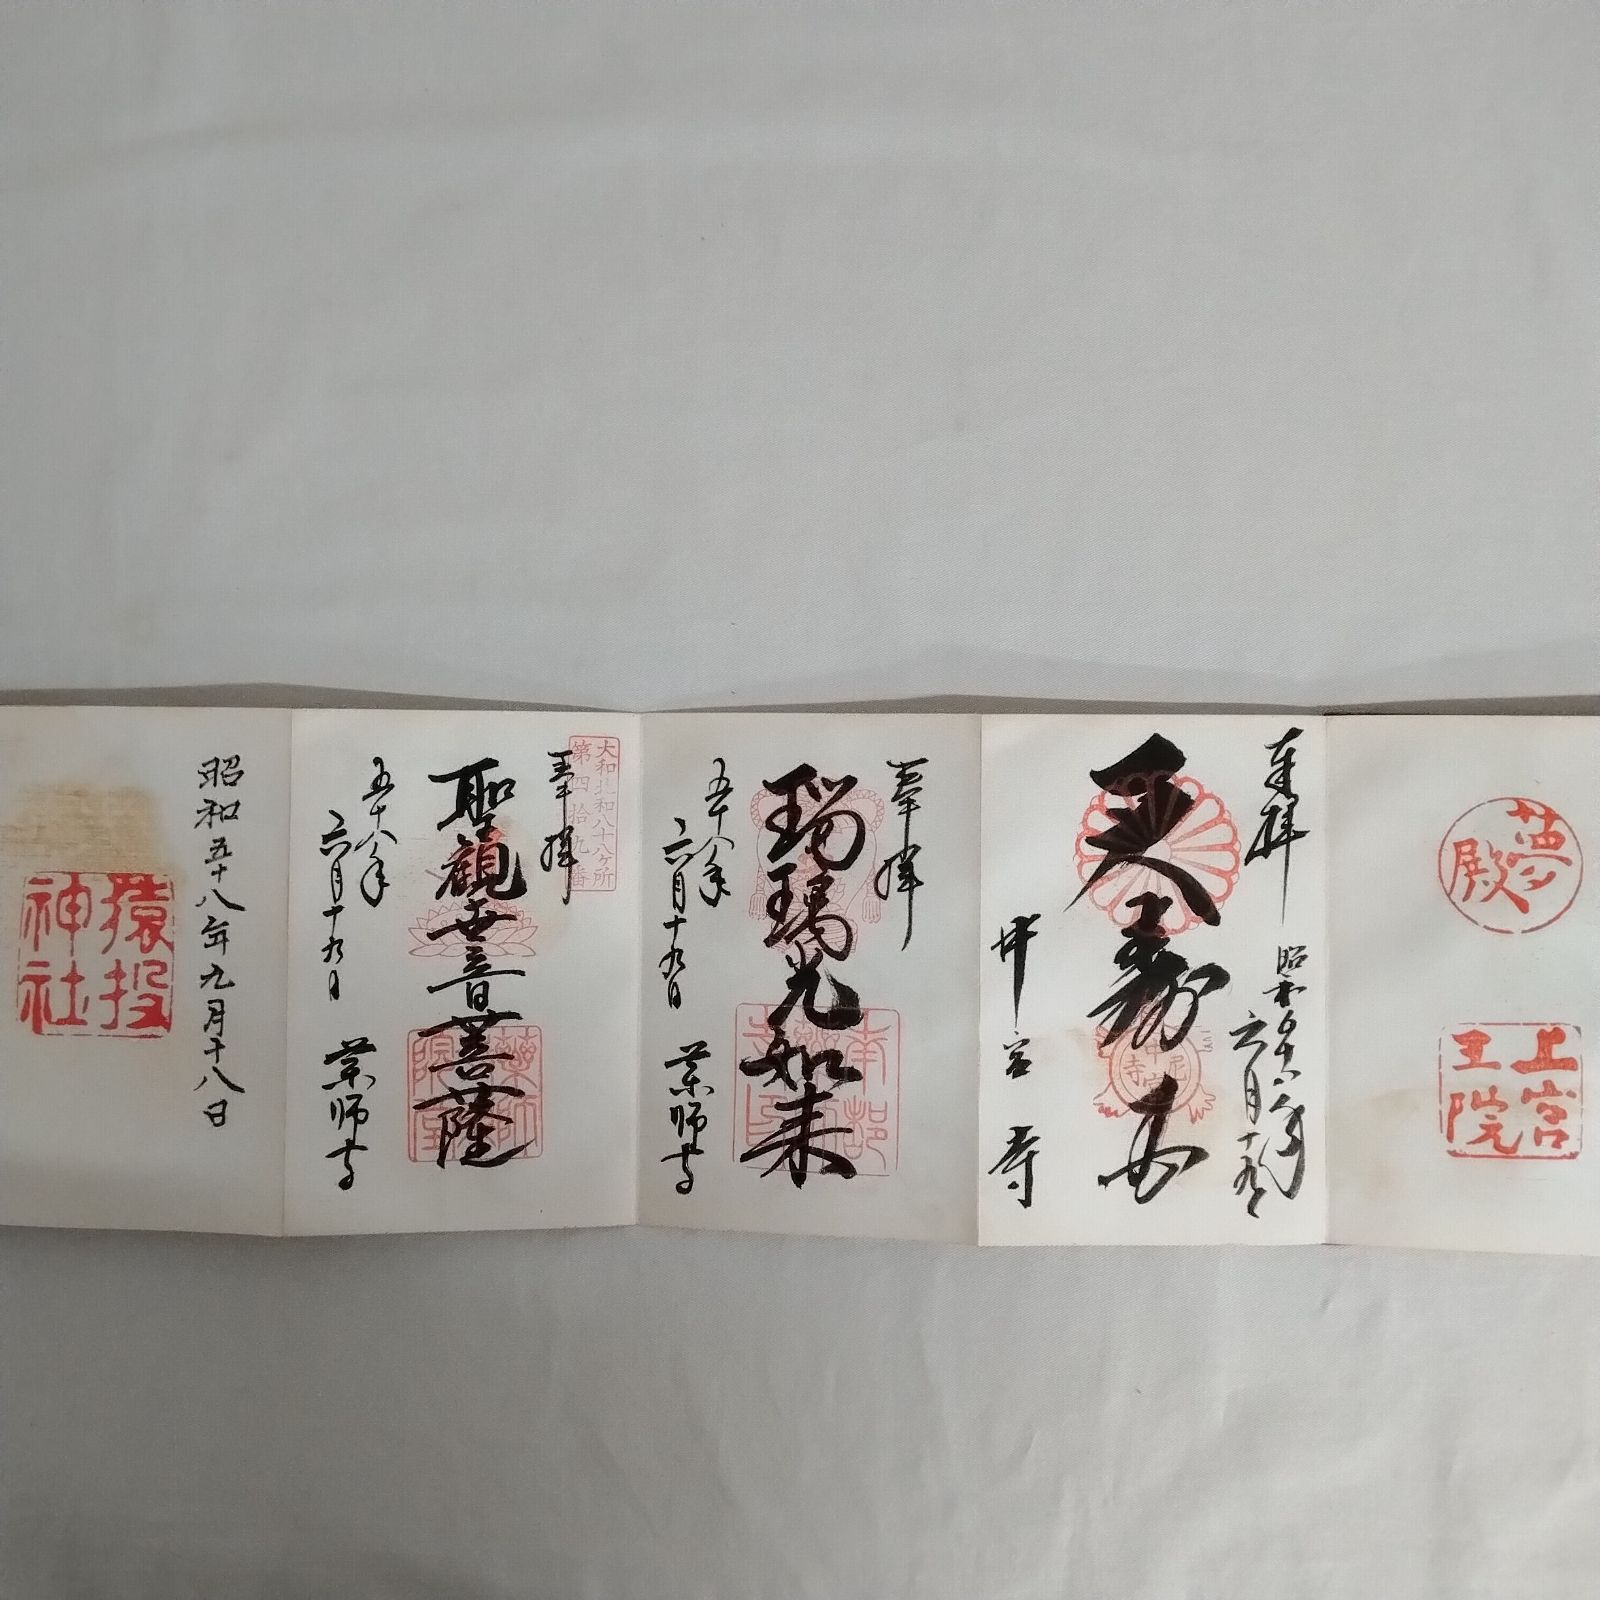 夢殿
上宮
王院
奉拝
昭和五十八年
六月十九日
天寿国
中宮寺
奉拝
瑠璃光如来
五十八年
六月十九日
薬師寺
大和北和八十八ヶ所
第四拾九番
奉拝
聖観世音菩薩
五十八年
六月十九日
薬師寺
昭和五十八年九月十八日
猿投
神社